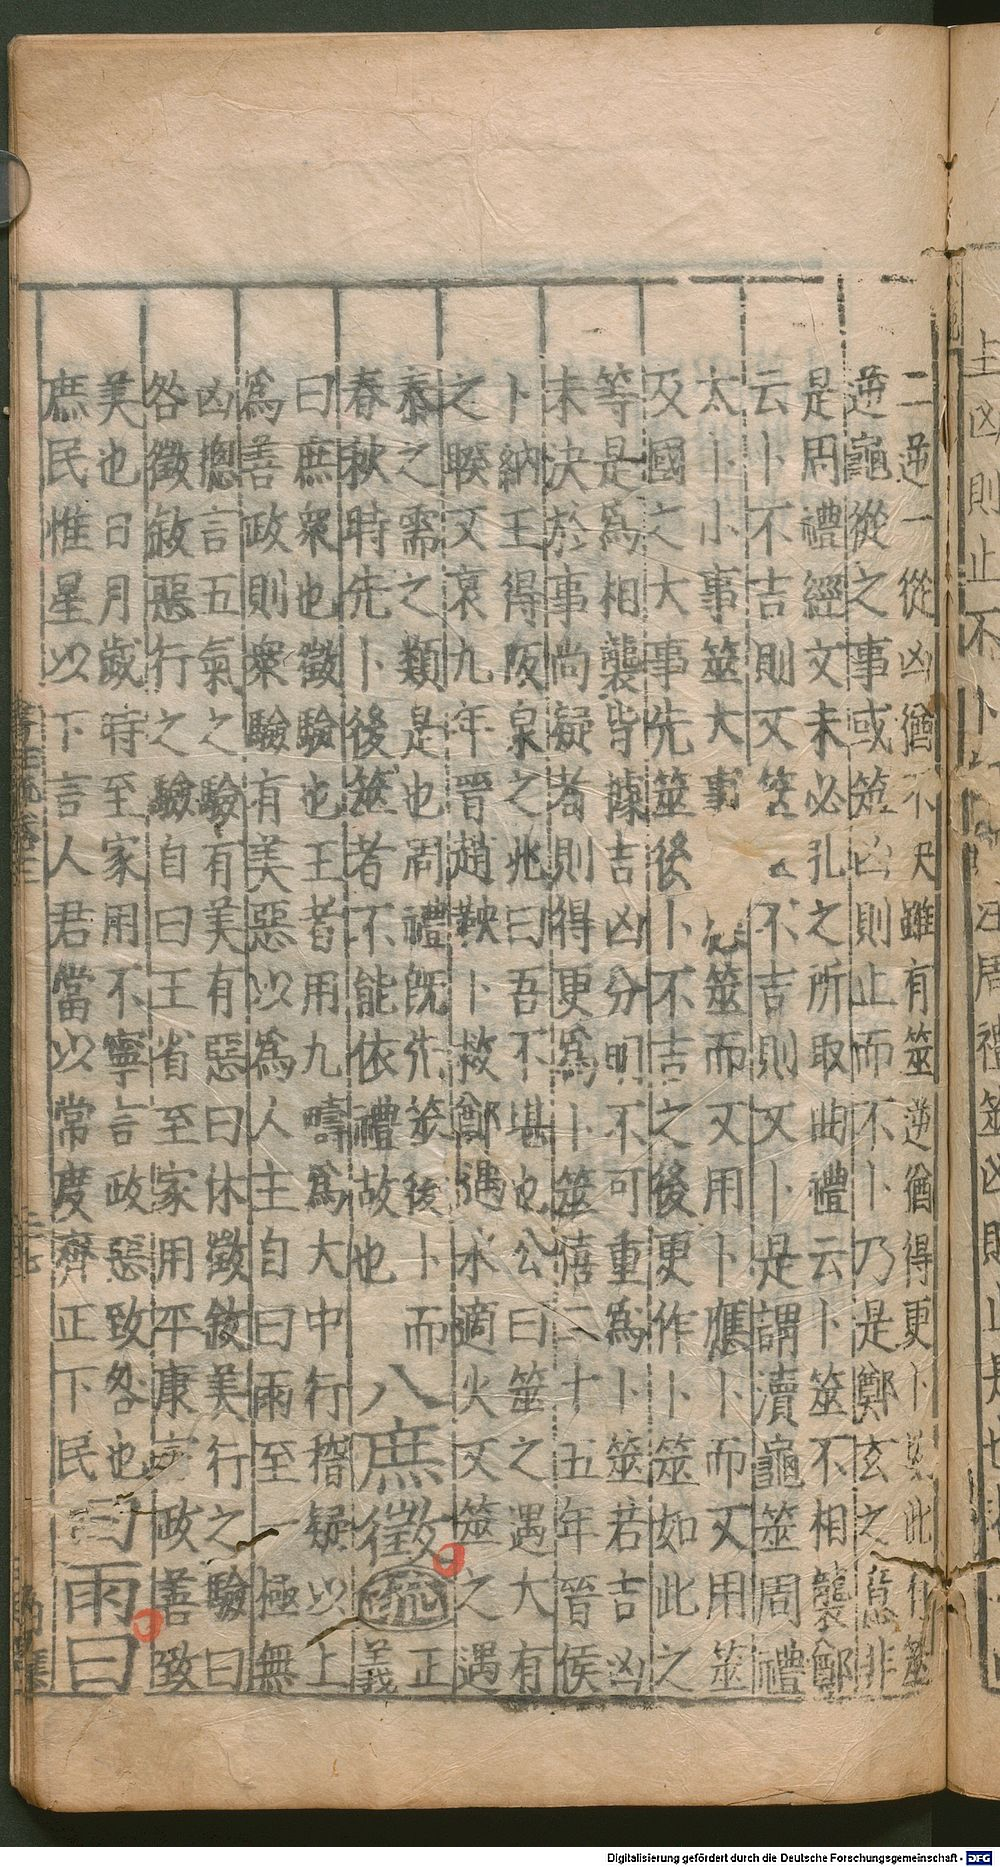 二逆一從凶猶不決雖有筮逆猶得更卜此筮
逆龜從之事或筮凶則止而不卜乃是鄭玄之意非
是周禮經文未必孔之所取曲禮云卜筮不相襲鄭
云卜不吉則又筮不吉則又卜是謂瀆龜筮周禮
太卜小事筮大事筮而又用卜應卜而又用筮
及國之大事先筮後卜不吉之後更作卜筮如此之
等是為相襲皆據吉凶分明不可重為卜筮若吉凶
未決於事尚疑者則得更為卜筮僖二十五年晉侯
卜納王得阪泉之兆曰吾不堪也公曰筮之遇大有
之睽又哀九年晉趙鞅卜救鄭遇水適火又筮之遇
泰之需之類是也周禮既先筮後卜而
春秋時先卜後筮者不能依禮故也
八庶徵 疏 正
義
曰庶衆也徵驗也王者用九疇為大中行稽疑以上
為善政則衆驗有美惡以為人主自曰雨至一極無
凶摠言五氣之驗有美有惡曰休徵敘美行之驗曰
咎徵敘惡行之驗自曰王省至家用平康言政善致
美也日月歲時至家用不寧言政惡致咎也
庶民惟星以下言人君當以常度齊正下民
曰雨曰
上凶則止不卜
周禮筮凶則止
Digitalisierung gefördert durch die Deutsche Forschungsgemeinschaft - DFG